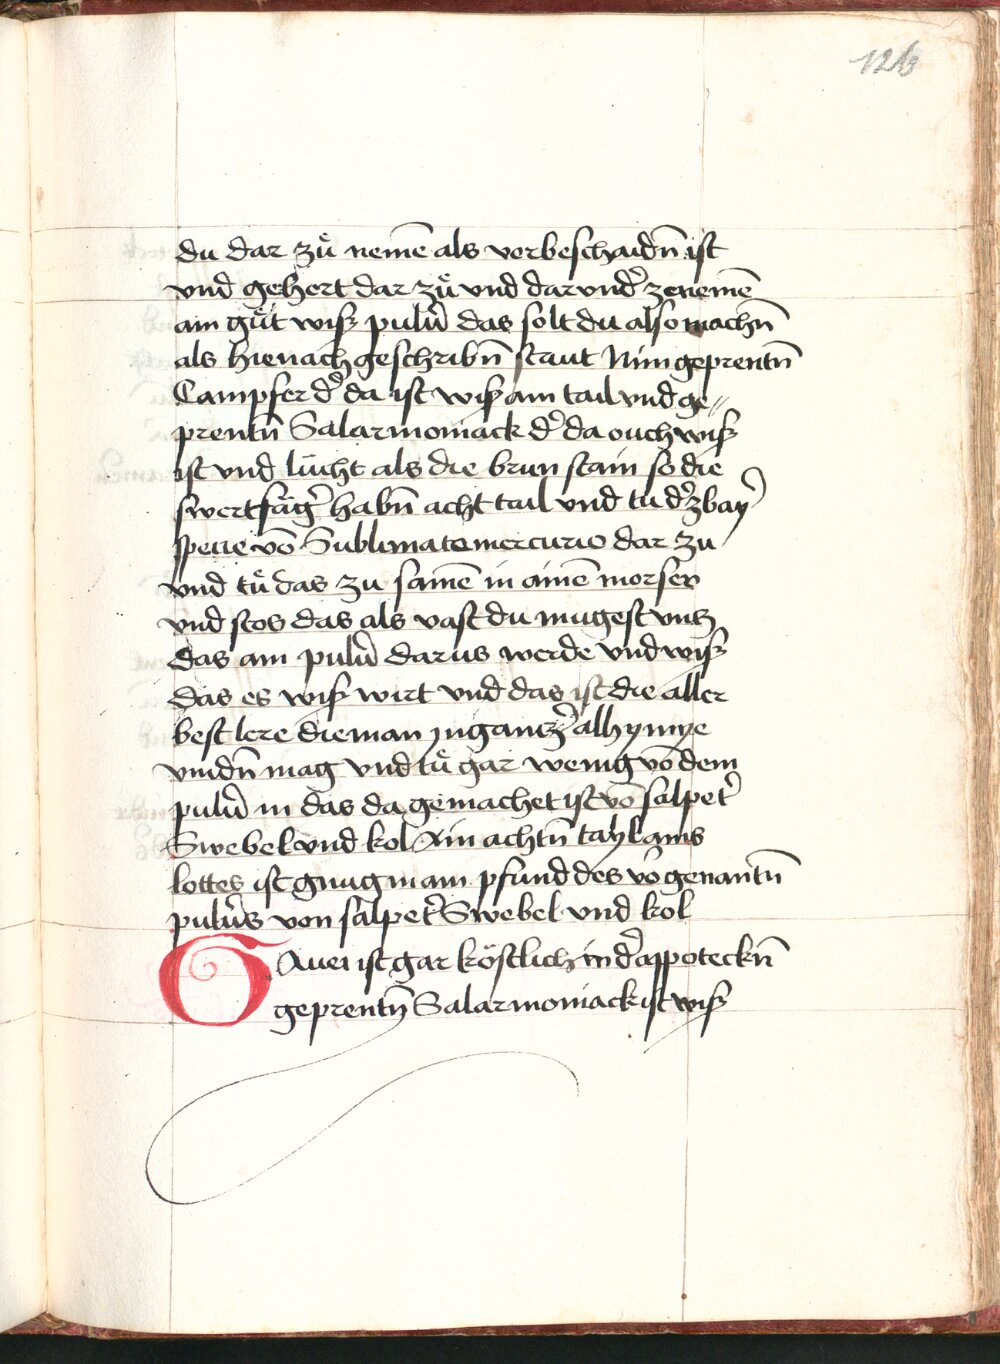 126
du dar zů nemē als vorbeschaidn̄ ist
vnd gehert dar zů vnd darvnd̓ zenemē
ain gůt wiß pulū̓ das solt du also machn̄
als hienach geschribn̄ staut Nim geprentn̄
Campfer d̓ da ist wiß ain tail vnd ge〃
prentn̄ Salarmoniack d̓ da ouch wiß
ist vnd lücht als die brun stain so die
swertfåg̓ habn̄ acht tail vnd tu d̓ zbay̓
speue vō Sublimato mercurio dar zu
vnd tů das zu samē in ainē morser
vnd stos das als vast du mugest vntz
das ain pulū̓ darus werde vnd wiß
das es wiß wirt vnd das ist die aller
best lere die man jn gantz̓ alhymye
vindn̄ mag vnd tů gar wenig vō dem
pulū̓ in das da gemachet ist vō salpet̓
Swebel vnd kol Ain achtn̄ tayl ains
lottes ist gnug in ain pfund des vo̓genantn̄
pulū̓s von salpet̓ Swebel vnd kol
Auei ist gar köstlich in d̓ appoteckn̄
geprentn̄ Salarmoniack ist wiß